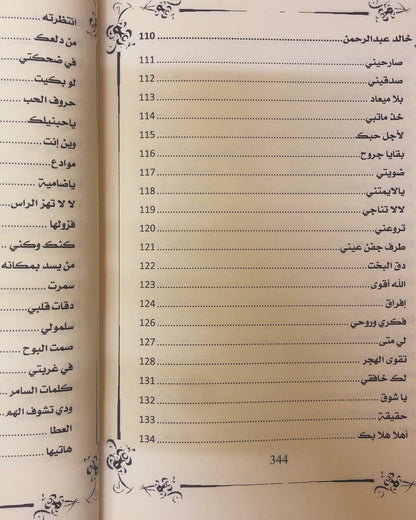 خالد عبدالرحمن 110
صارحيني 111
صدقيني 112
بلا ميعاد 113
خذ ماتبي 114
لأجل حبك 115
بقايا جروح 116
ضويتي 117
يالايمتني 118
لالا تناجي 119
تروعني 120
طرف جفن عيني 121
دق البخت 122
الله أقوى 123
إفراق 124
فكري وروحي 126
لي متى 127
تقوى الهجر 128
لك خافقي 131
يا شوق 132
حقيقة 133
أهلا هلا بك 134
344
انتظرته
من دلعك
في ضحكتي
لو بكيت
حروف الحب
ياحبنيلك
وين إنت
موادع
ياضامية
لا لا تهز الراس
فزولها
كنك وكني
من يسد بمكانه
سمرت
دقات قلبي
سلمولي
صمت البوح
في غربتي
كلمات السامر
ودي تشوف الهم
العطا
هاتيها